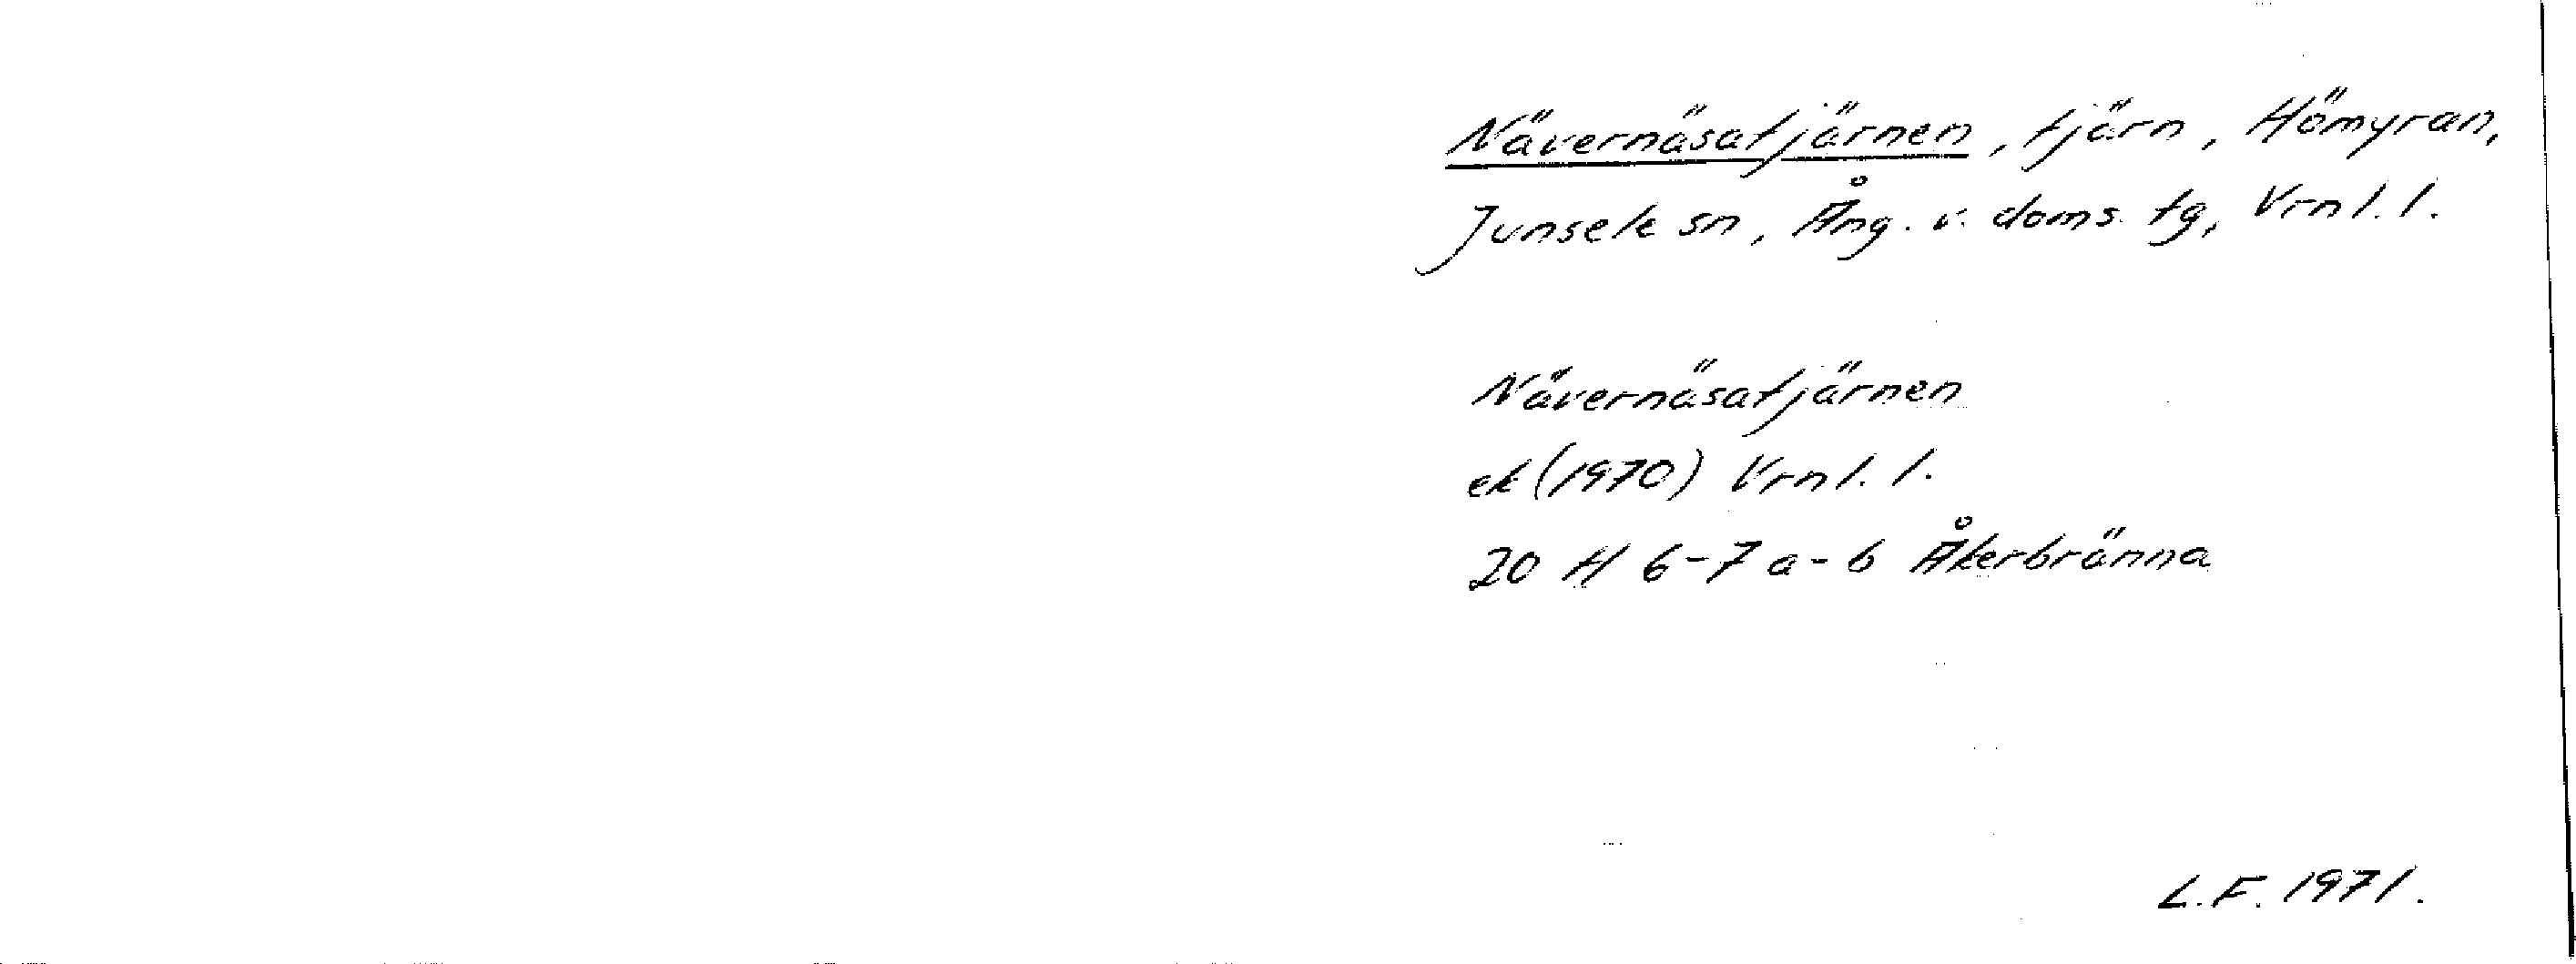 Nävernäsatjärnen, tjärn, Hömyran,
Junsele sn, Ång. v. doms. tg, Vrnl. l.
Nävernäsatjärnen
ek (1970) Vrnl. l.
20 H 6-7 a-b Åkerbränna
L.F. 1971.